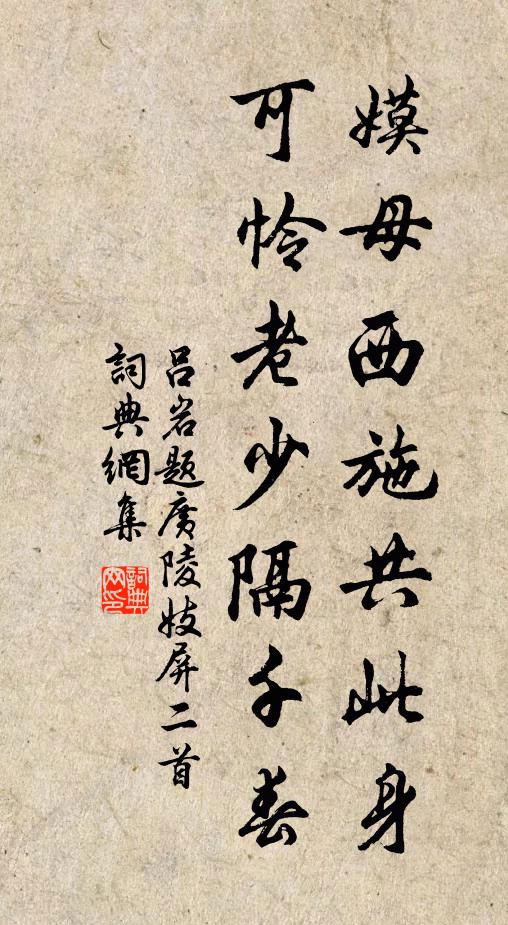 嫫母西施共此身
可怜老少隔千春
吕岩题廣陵妓屏二首
詞典網集
詞典網印